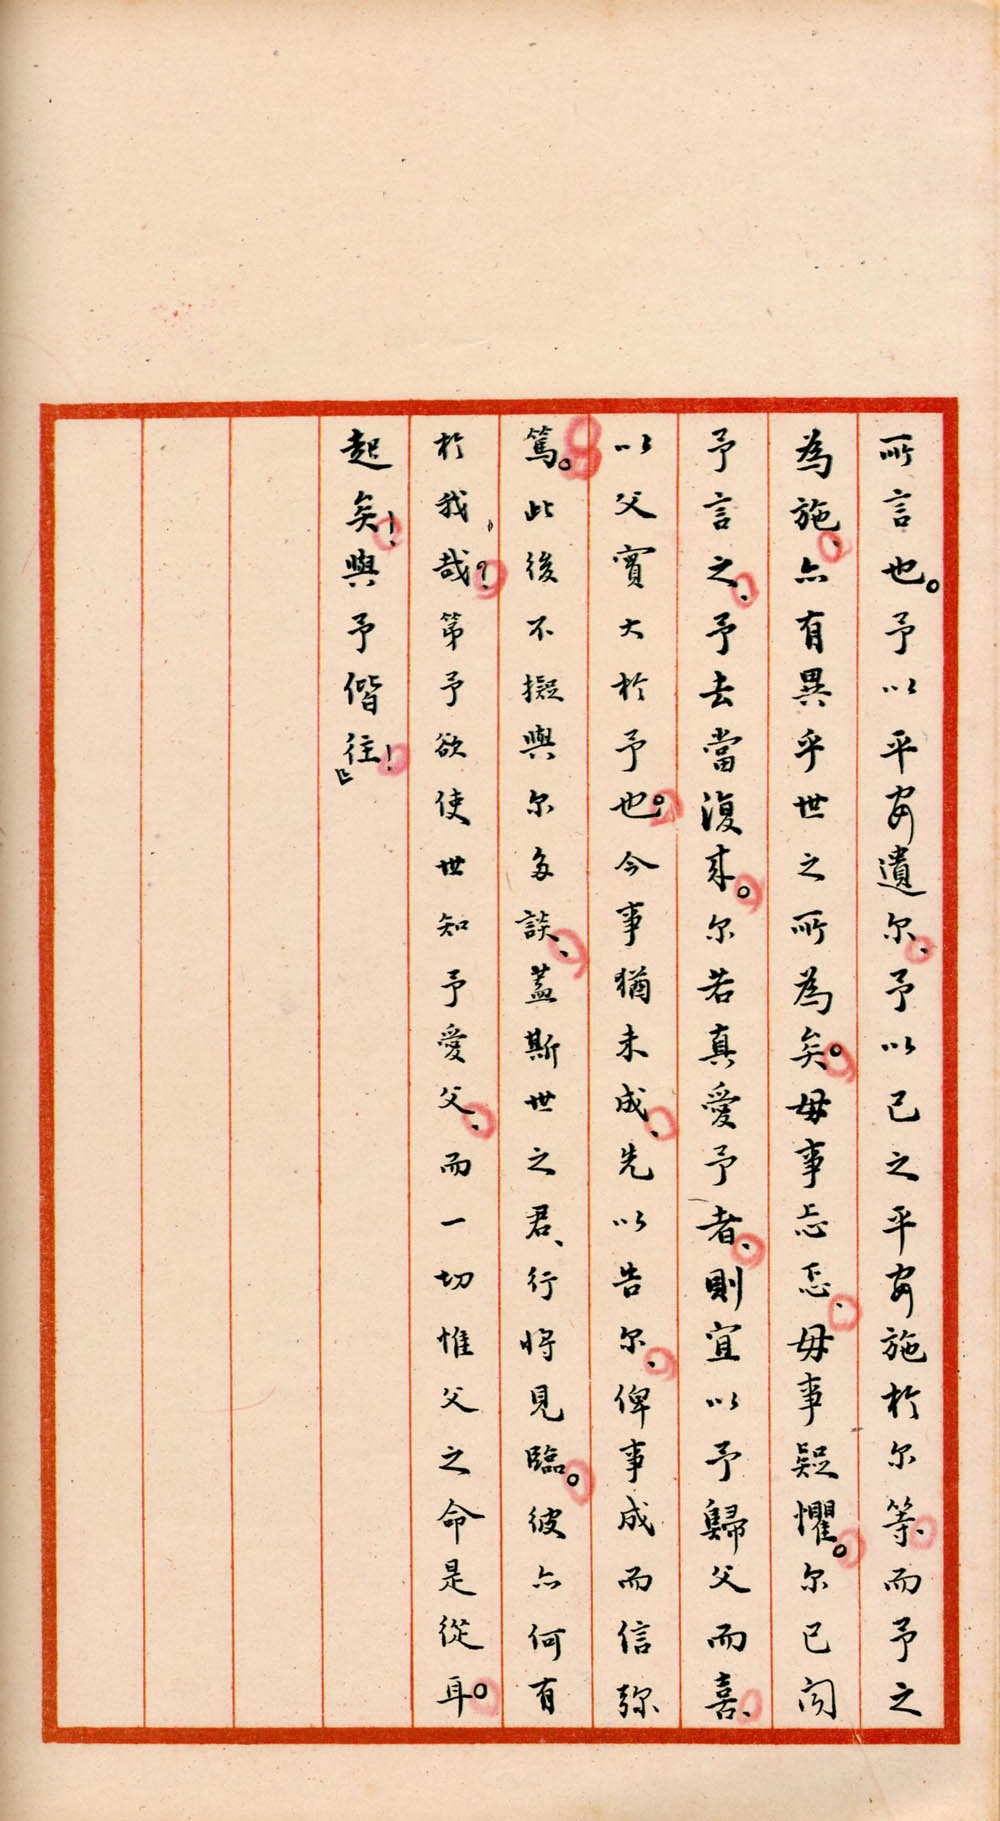 所言也。予以平安遺尔、予以己之平安施於尔等、而予之
為施、亦有異乎世之所為矣。毋事忐忑、毋事疑懼。尔已聞
予言之、予去當復來。尔若真愛予者、則宜以予歸父而喜、
以父實大於予也。今事猶未成、先以告尔、俾事成而信弥
篤。此後不擬與尔多談、蓋斯世之君、行將見臨。彼亦何有
於我哉？第予欲使世知予愛父、而一切惟父之命是從耳。
起矣！與予偕往！』